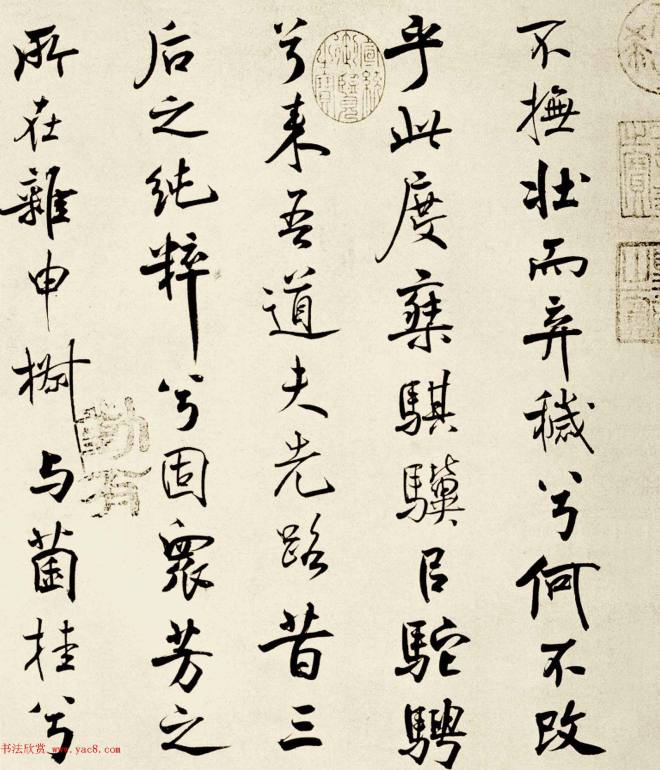 不撫壯而弃穢兮何不改
乎此度椉騏驥㠯駝騁
兮来吾道夫先路昔三
后之純粹兮固衆芳之
所在雜申椒与菌桂兮
宣統御覽之寶
书法欣赏_www.yac8.com